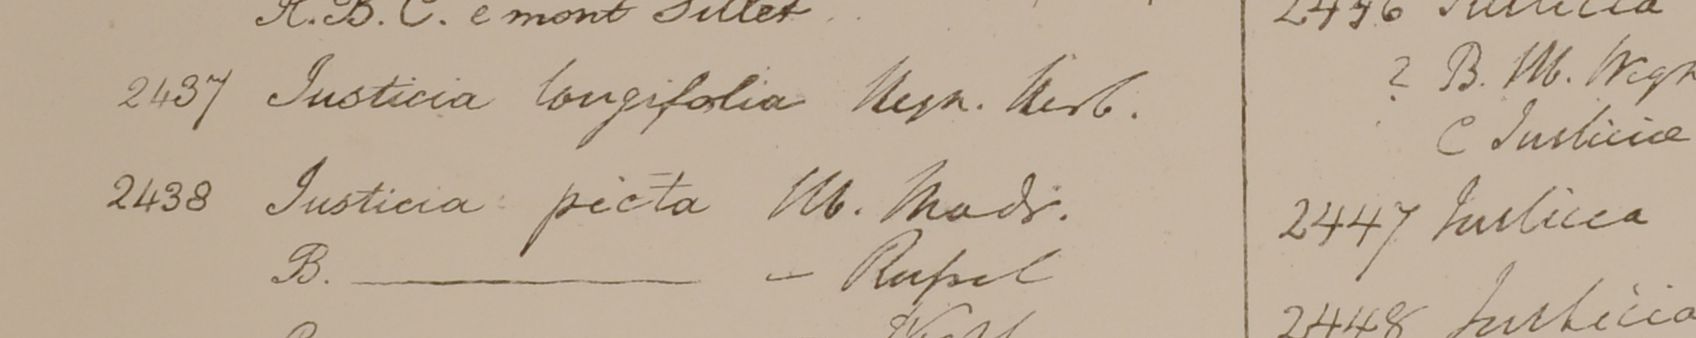 A. B. C. e mont Sillet
2437 Justicia longifolia Hegn. Herb.
2438 Justicia picta Hb. Madr.
B. — Russel
2446 Justicia
? B. Hb.
C Justiciæ
2447 Justicea
2448 Justicia